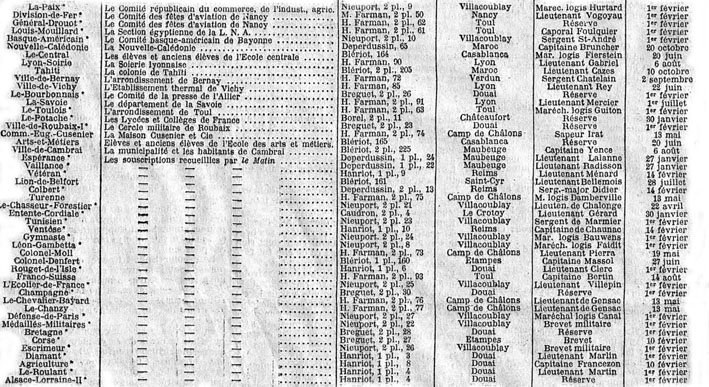 La-Paix* Le Comité républicain du commerce, de l'indust., agric. Nieuport, 2 pl., 9 Villacoublay Marec. logis Hurtard 1er février
Division-de-Fer* Le Comité des fêtes d'aviation de Nancy M. Farman, 2 pl. 50 Nancy Lieutenant Vogoyau 1er février
Général-Drouot* Le Comité des fêtes d'aviation de Nancy H. Farman, 2 pl., 62 Toul Réserve 1er février
Louis-Mouillard* La Section égyptienne de la L. N. A. H. Farman, 2 pl., 61 Toul Caporal Foulquier 1er février
Basque-Américain* Le Comité basque-américain de Bayonne Nieuport, 2 pl., 10 Villacoublay Sergent St-André 1er février
Nouvelle-Calédonie La Nouvelle-Calédonie Deperdussin, 65 Maroc Capitaine Bruncher 20 octobre
Le-Central Les élèves et anciens élèves de l'Ecole centrale Blériot, 164 Casablanca Mar. logis Fierstein 20 juin
Lyon-Soirie La Soierie lyonnaise H. Farman, 90 Lyon Lieutenant Gabriel 6 août
Tahiti La colonie de Tahiti Blériot, 2 pl., 205 Maroc Lieutenant Cazes 10 octobre
Ville-de-Bernay L'arrondissement de Bernay H. Farman, 72 Verdun Sergent Chatelain 2 septembre
Ville-de-Vichy L'Etablissement thermal de Vichy H. Farman, 85 Lyon Lieutenant Rey 22 juin
Le-Bourbonnais* Le Comité de la presse de l'Allier Breguet, 2 pl., 26 Douai Réserve 1er février
La-Savoie Le département de la Savoie H. Farman, 2 pl., 91 Lyon Lieutenant Mercier 1er juillet
Le-Toulois* L'arrondissement de Toul H. Farman, 2 pl., 63 Toul Maréc. logis Guiton 1er février
Le-Potache* Les Lycées et Collèges de France Borel, 2 pl., 11 Châteaufort Réserve 30 janvier
Ville-de-Roubaix-I* Le Cercle militaire de Roubaix Breguet, 2 pl., 23 Douai Réserve 1er février
Comm.-Eug.-Cusenier La Maison Cusenier et Cie H. Farman, 2 pl., 74 Camp de Châlons Sapeur Irat 13 mai
Arts-et-Métiers Elèves et anciens élèves de l'Ecole des arts et métiers. Blériot, 165 Casablanca Réserve 20 juin
Ville-de-Cambrai La municipalité et les habitants de Cambrai Blériot, 2 pl., 225 Maubeuge Capitaine Yence 6 août
Espérance* Les souscriptions recueillies par le Matin Deperdussin, 1 pl., 24 Maubeuge Lieutenant Lalanne 27 janvier
Vaillante* — — — Deperdussin, 1 pl., 22 Maubeuge Lieutenant Radisson 27 janvier
Vétéran* — — — Hanriot, 1 pl., 9 Reims Lieutenant Ménard 14 février
Lion-de-Belfort — — — Blériot, 161 Saint-Cyr Lieutenant Bellemois 28 juillet
Colbert* — — — Deperdussin, 2 pl., 13 Reims Serg.-major Didier 14 février
Turenne — — — H. Farman, 2 pl., 75 Camp de Châlons M. logis Damberville 13 mai
Le-Chasseur-Forestier* — — — Nieuport, 2 pl. 21 Villacoublay Lieuten. de Chalonge 22 avril
Entente-Cordiale* — — — Caudron, 2 pl., 4 Le Crotoy Lieutenant Gérard 30 janvier
Tunisien* — — — Nieuport, 2 pl., 23 Villacoublay Sergent de Marmier 1er février
Ventôse* — — — Hanriot, 1 pl., 10 Reims Capitaine de Chaunac 14 février
Gymnaste* — — — Nieuport, 2 pl., 24 Villacoublay Mar. logis Bauwens 1er février
Léon-Gambetta* — — — Nieuport, 2 pl., 8 Villacoublay Maréch. logis Faidit 1er février
Colonel-Moll — — — H. Farman, 2 pl., 73 Camp de Châlons Lieutenant Pierra 19 mai
Colonel-Denfert — — — Blériot, 1 pl., 160 Etampes Capitaine Massol 27 juin
Rouget-de-l'Isle* — — — Hanriot, 1 pl., 6 Douai Lieutenant Clerc 1er février
Franco-Suisse — — — H. Farman, 2 pl., 93 Toul Capitaine Bertin 14 août
L'Ecolier-de-France* — — — Nieuport, 2 pl., 25 Villacoublay Lieutenant Villepin 1er février
Champagne* — — — Breguet, 2 pl., 30 Douai Réserve 1er février
Le-Chevalier-Bayard — — — H. Farman, 2 pl., 76 Camp de Châlons Lieutenant de Gensac 13 mai
Le-Chanzy — — — H. Farman, 2 pl., 77 Camp de Châlons Lieutenant de Gensac 13 mai
Défense-de-Paris* — — — Nieuport, 2 pl., 27 Villacoublay Maréchal logis Canal 1er février
Médaillés-Militaires* — — — Nieuport, 2 pl., 22 Villacoublay Brevet militaire 1er février
Bretagne* — — — Breguet, 2 pl., 28 Douai Réserve 1er février
Corse* — — — Breguet, 2 pl., 27 Etampes Brevet 10 février
Escrimeur* — — — Nieuport, 2 pl., 26 Villacoublay Brevet militaire 1er février
Diamant* — — — Hanriot, 1 pl., 3 Douai Lieutenant Martin 1er février
Agriculture* — — — Hanriot, 1 pl., 8 Douai Capitaine Francezon 10 février
Le-Roulant* — — — Hanriot, 1 pl., 4 Douai Lieutenant Martin 1er février
Alsace-Lorraine-II* — — — Hanriot, 1 pl., 4 Douai Réserve 1er février